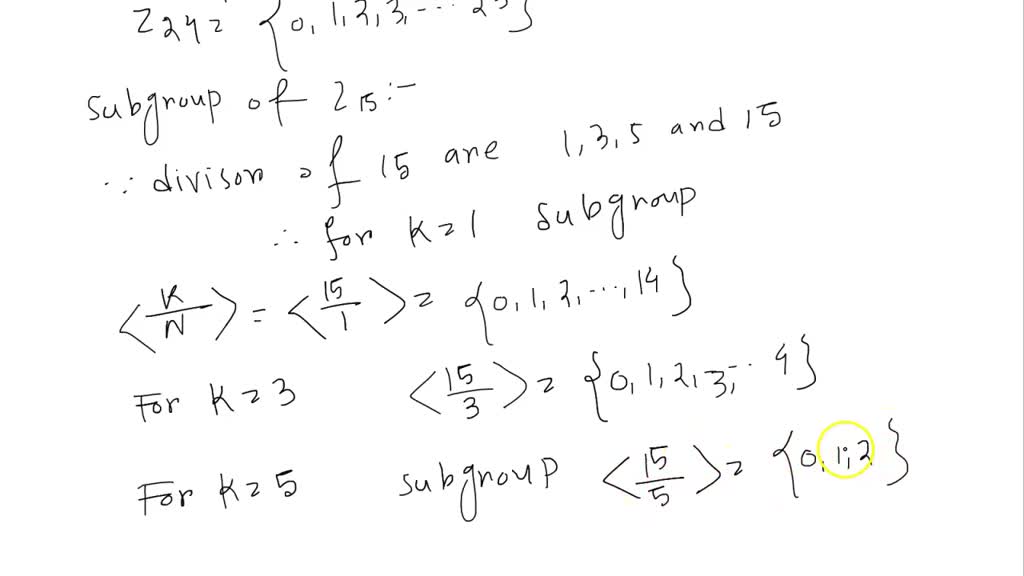 Z24 = {0, 1, 2, 3, ... 23}
Subgroup of Z15 :-
∵ divison of 15 are 1, 3, 5 and 15
∴ for K = 1 subgroup
<K/N> = <15/1> = {0, 1, 2, ..., 14}
For K = 3 <15/3> = {0, 1, 2, 3, .. 4}
For K = 5 subgroup <15/5> = {0, 1, 2}